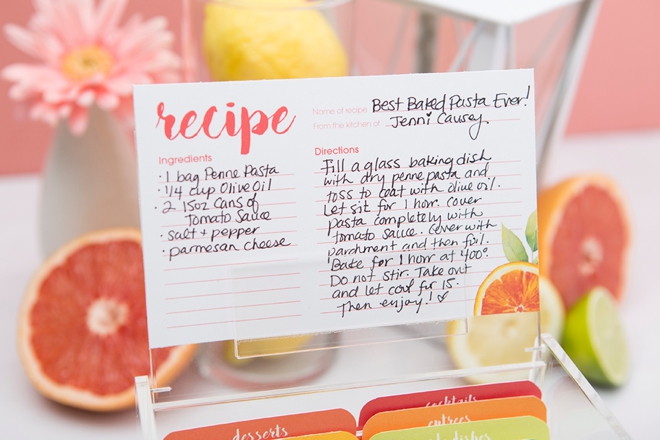 recipe
Name of recipe Best Baked Pasta Ever!
From the kitchen of Jenni Causey
Ingredients
· 1 bag Penne Pasta
· 1/4 cup Olive Oil
· 2 15oz Cans of
Tomato Sauce
· salt + pepper
· parmesan cheese
Directions
Fill a glass baking dish
with dry penne pasta and
toss to coat with olive oil.
Let sit for 1 hour. Cover
pasta completely with
tomato sauce. Cover with
parchment and then foil.
Bake for 1 hour at 400°.
Do not stir. Take out
and let cool for 15.
Then enjoy!
cocktails
entrees
desserts
dishes